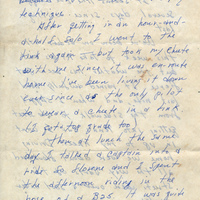 technique.
After getting in an hour-and-
a-half solo, I went to the
Link again — but took my chute
with me since it was en-route
home. I've been living it down
ever since as the only pilot
to wear a chute in a Link
(I gets top grade too)
Then at lunch the same
day I talked a captain into a
ride so and I spent
the afternoon riding in the
nose of a B25. It was quite